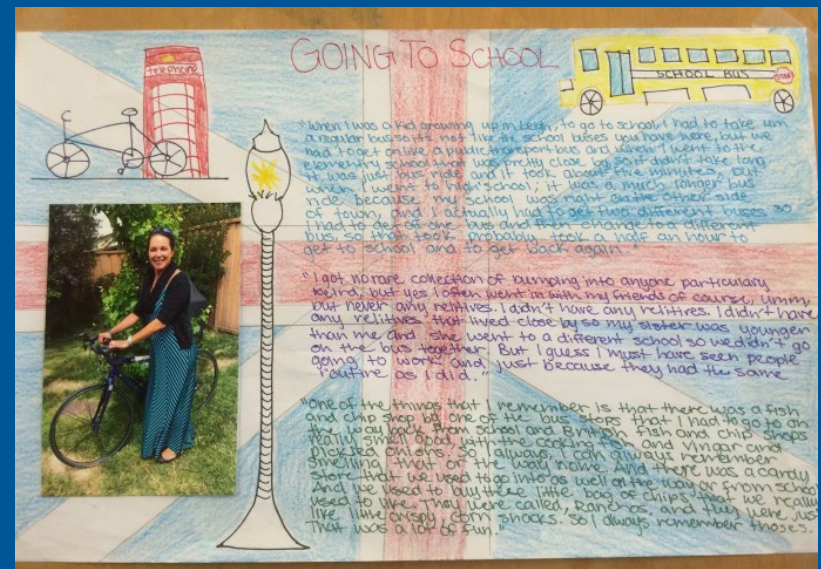 GOING TO SCHOOL
telephone
SCHOOL BUS
STOP
"When I was a kid growing up in Leigh, to go to school I had to take, um
a regular bus so it's not like the school buses you have here, but we
had to get on like a public transport bus and when I went to the
elementry school that was pretty close by so it didn't take long
it was just bus ride and it took about five minutes, but
when I went to high school; it was a much longer bus
ride because my school was right on the other side
of town, and I actually had to get two different buses so
I had to get of one bus and then change to a different
bus, so that took probably took a half an hour to
get to school and to get back again."
"I got no rare collection of bumping into anyone particulary
weird, but yes I often went in with my friends of course, umm,
but never any relitires. I didn't have any relitires. I didn't have
any relitires that lived close by so my sister was younger
than me and she went to a different school so we didn't go
on the bus together. But I guess I must have seen people
going to work and, just because they had the same
routine as I did."
"One of the things that I remember is that there was a fish
and chip shop by one of the bus stops that I had to go to on
the way back from school and British fish and chip shops
really smell good, with the cooking fish and vingar and
pickled onions. So I always, I can always remember
smelling that on the way home. And there was a candy
store that we used to go into as well on the way or from school
And we used to buy these little bag of chips that we really
used to like. They were called, Ranchos, and they were just
like little crispy corn snacks. So I always remember thoses.
That was a lot of fun."